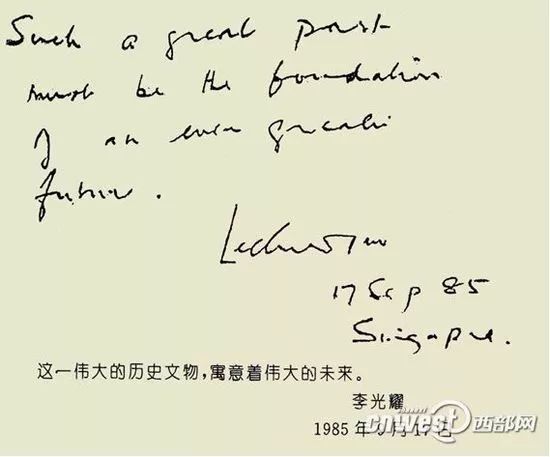 Such a great past
must be the foundation
of an even greater
future.
17 Sep 85
Singapore.
这一伟大的历史文物，寓意着伟大的未来。
李光耀
1985年9月17日
cnwest 西部网